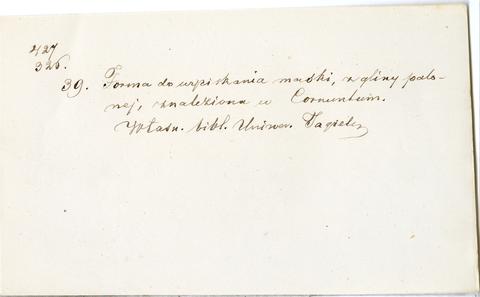 427
326.
39. Forma do wyciskania maski, z gliny palo-
nej, znaleziona w Cornuntum.
Własn. bibl. Uniwer. Jagiell.